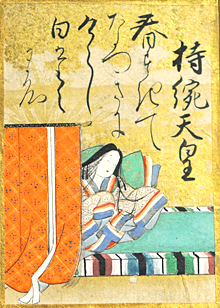 持統天皇
春すきて
なつきに
けらし
白